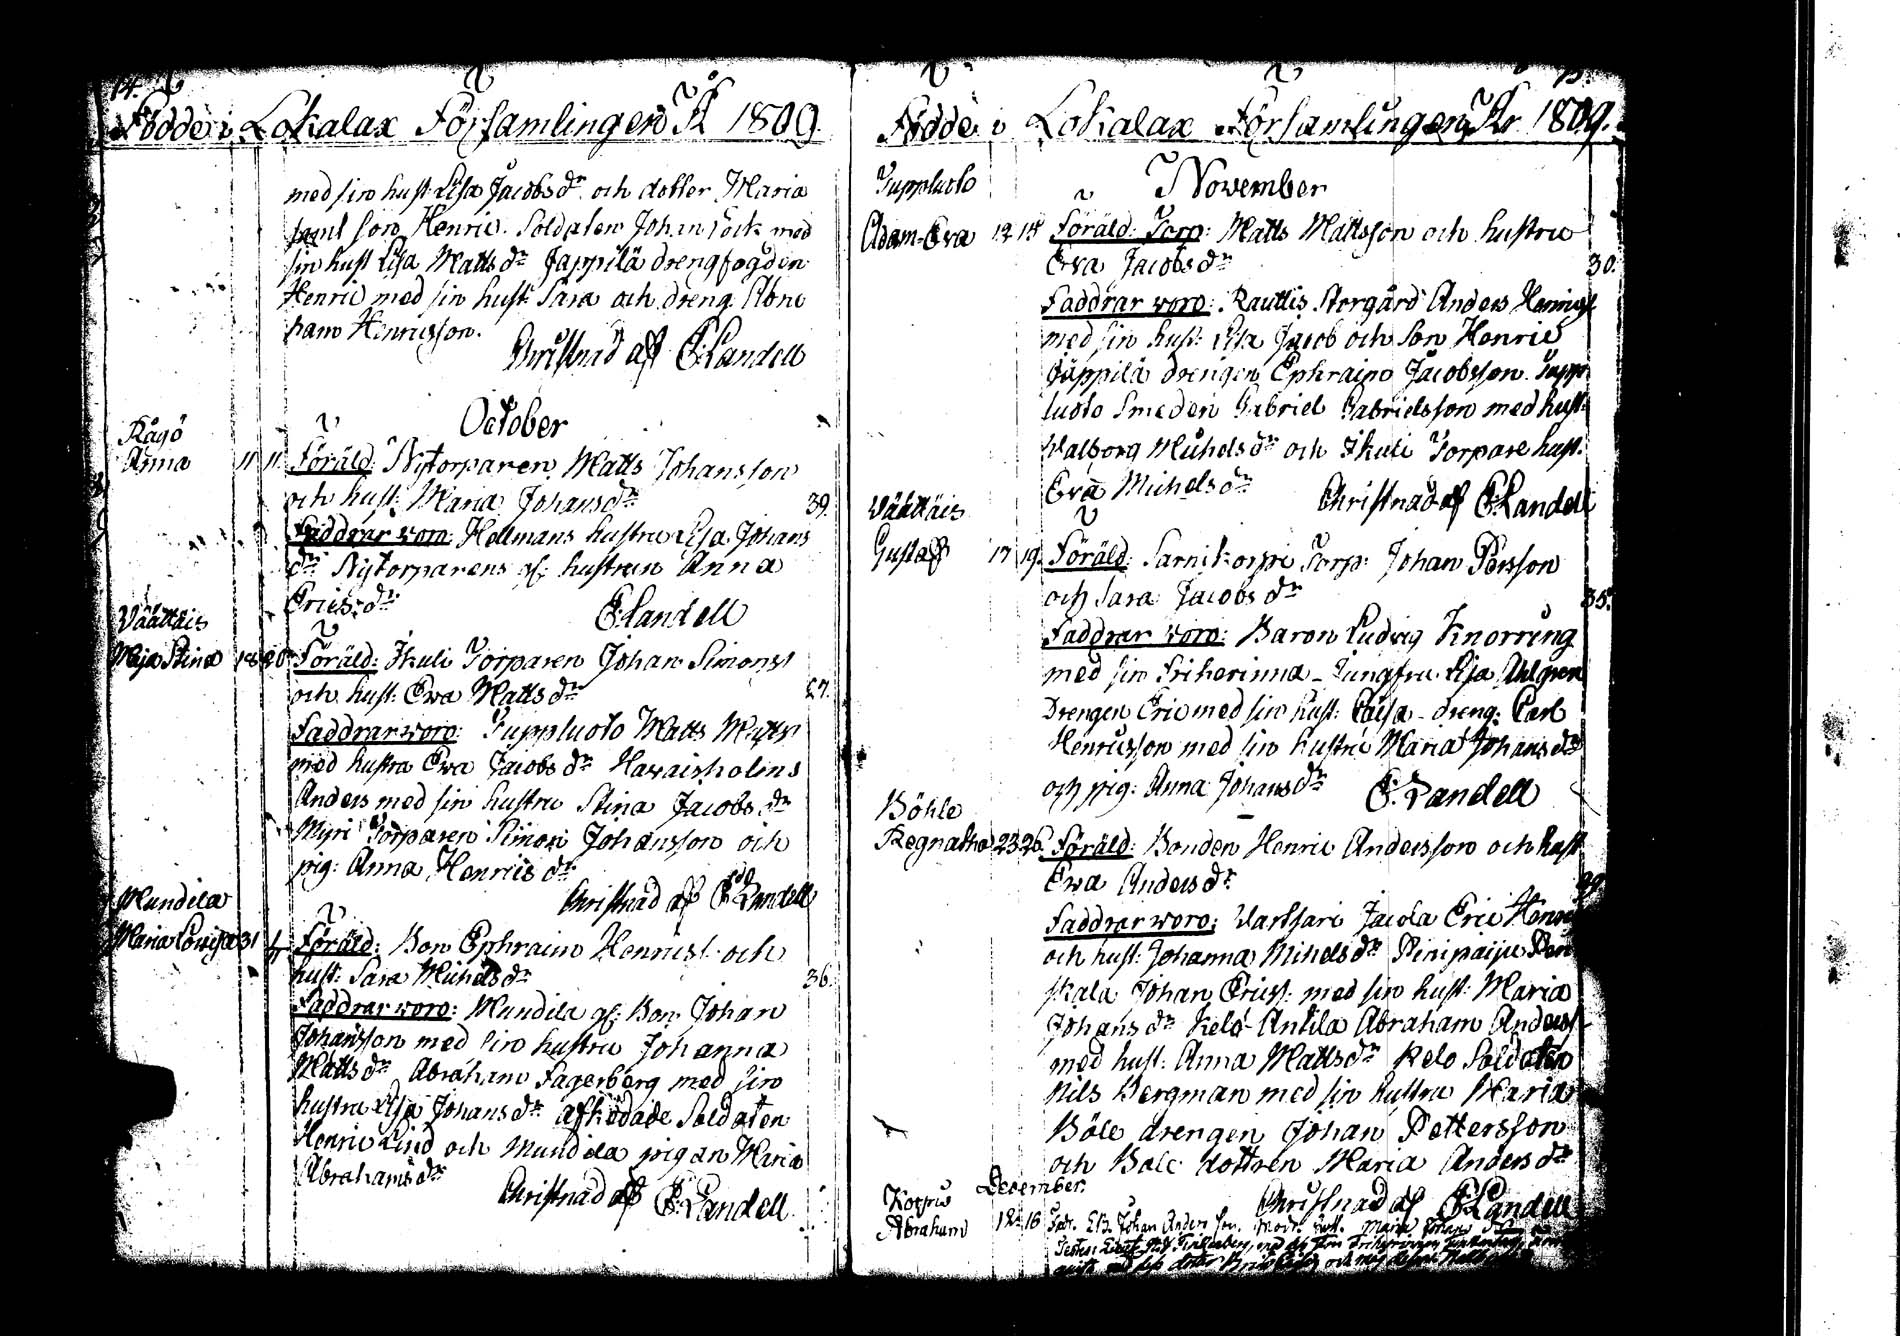 14.
Födde i Lokalax Församlingen År 1809.
med sin hust: Lisa Jacobs dr och dotter Maria
samt son Henric. Soldaten Johan med
sin hust Lisa Matts dr Jappilä drengfogden
Henric med sin hust: Sara och dreng Abra
ham Henricsson.
Christnad af E: Landell
October
Rågö
Anna 11 11. Föräld: Nytorparen Matts Johansson
och hust: Maria Johans dr 39.
Faddrar woro: Hellmans hustru Lisa Johans
dr Nytorparens gl: hustrun Anna
Erics: dr E: Landell
Wäättäis
Maja Stina 18 20 Föräld: Ikuli Torparen Johan Simonss
och hust: Ewa Matts dr 27.
Faddrar woro: Suppluoto Matts Mattss
med hustru Ewa Jacobs dr Hawaisholms
Anders med sin hustru Stina Jacobs dr
Myri Torparen Simon Johansson och
pig: Anna Henrics dr
Christnad af E: Landell
Mundila
Maria Lowisa 31 Föräld: Bon Ephraim Henricss: och
hust: Sara Michels dr 36.
Faddrar woro: Mundila gl: Bon: Johan
Johansson med sin hustru Johanna
Matts dr Abraham Fagerberg med sin
hustru Lisa Johans dr Soldaten
Henric Lind och Mundila pigan Maria
Abrahams dr
Christnad af E: Landell
15.
Födde i Lokalax Församlingen År 1809.
November
Suppluoto
Adam-Ewa 12 14 Föräld: Torp: Matts Mattsson och hustru
Ewa Jacobs dr 30.
Faddrar woro: Rauttis Storgård Anders Henricss
med sin hust: Lisa Jacob och son Henric
Jäppilä drengen Ephraim Jacobsson. Supp
luoto Smeden Gabriel Gabrielsson med hust:
Walborg Michels dr och Ikuli Torpare hust:
Ewa Michels dr Christnad af E: Landell
Wäättäis
Gustaf 17 19. Föräld: Sarnikorpi Torp: Johan Persson
och Sara Jacobs dr 35.
Faddrar woro: Baron Ludvig Knorring
med sin Friherinna - Jungfru Lisa Ahlgren
Drengen Eric med sin hust: Caisa - dreng: Carl
Henricsson med sin hustru Maria Johans dr
och pig: Anna Johans dr E: Landell
Böhle
Regnatha 23 26. Föräld: Bonden Henric Andersson och hust
Ewa Anders dr
Faddrar woro: Warhjari Jacola Eric
och hust: Johanna Michels dr Pen
skala Johan Ericss: med sin hust: Maria
Johans dr Kelo-Antila Abraham Anderss-
med hust: Anna Matts dr Kelo Soldaten
Nils Bergman med sin hustru Maria
Böle drengen Johan Pettersson
och Bole dottren Maria Anders dr
Christnad af E: Landell
December.
Abraham 12 16 Johan Anders son. Maria Johans